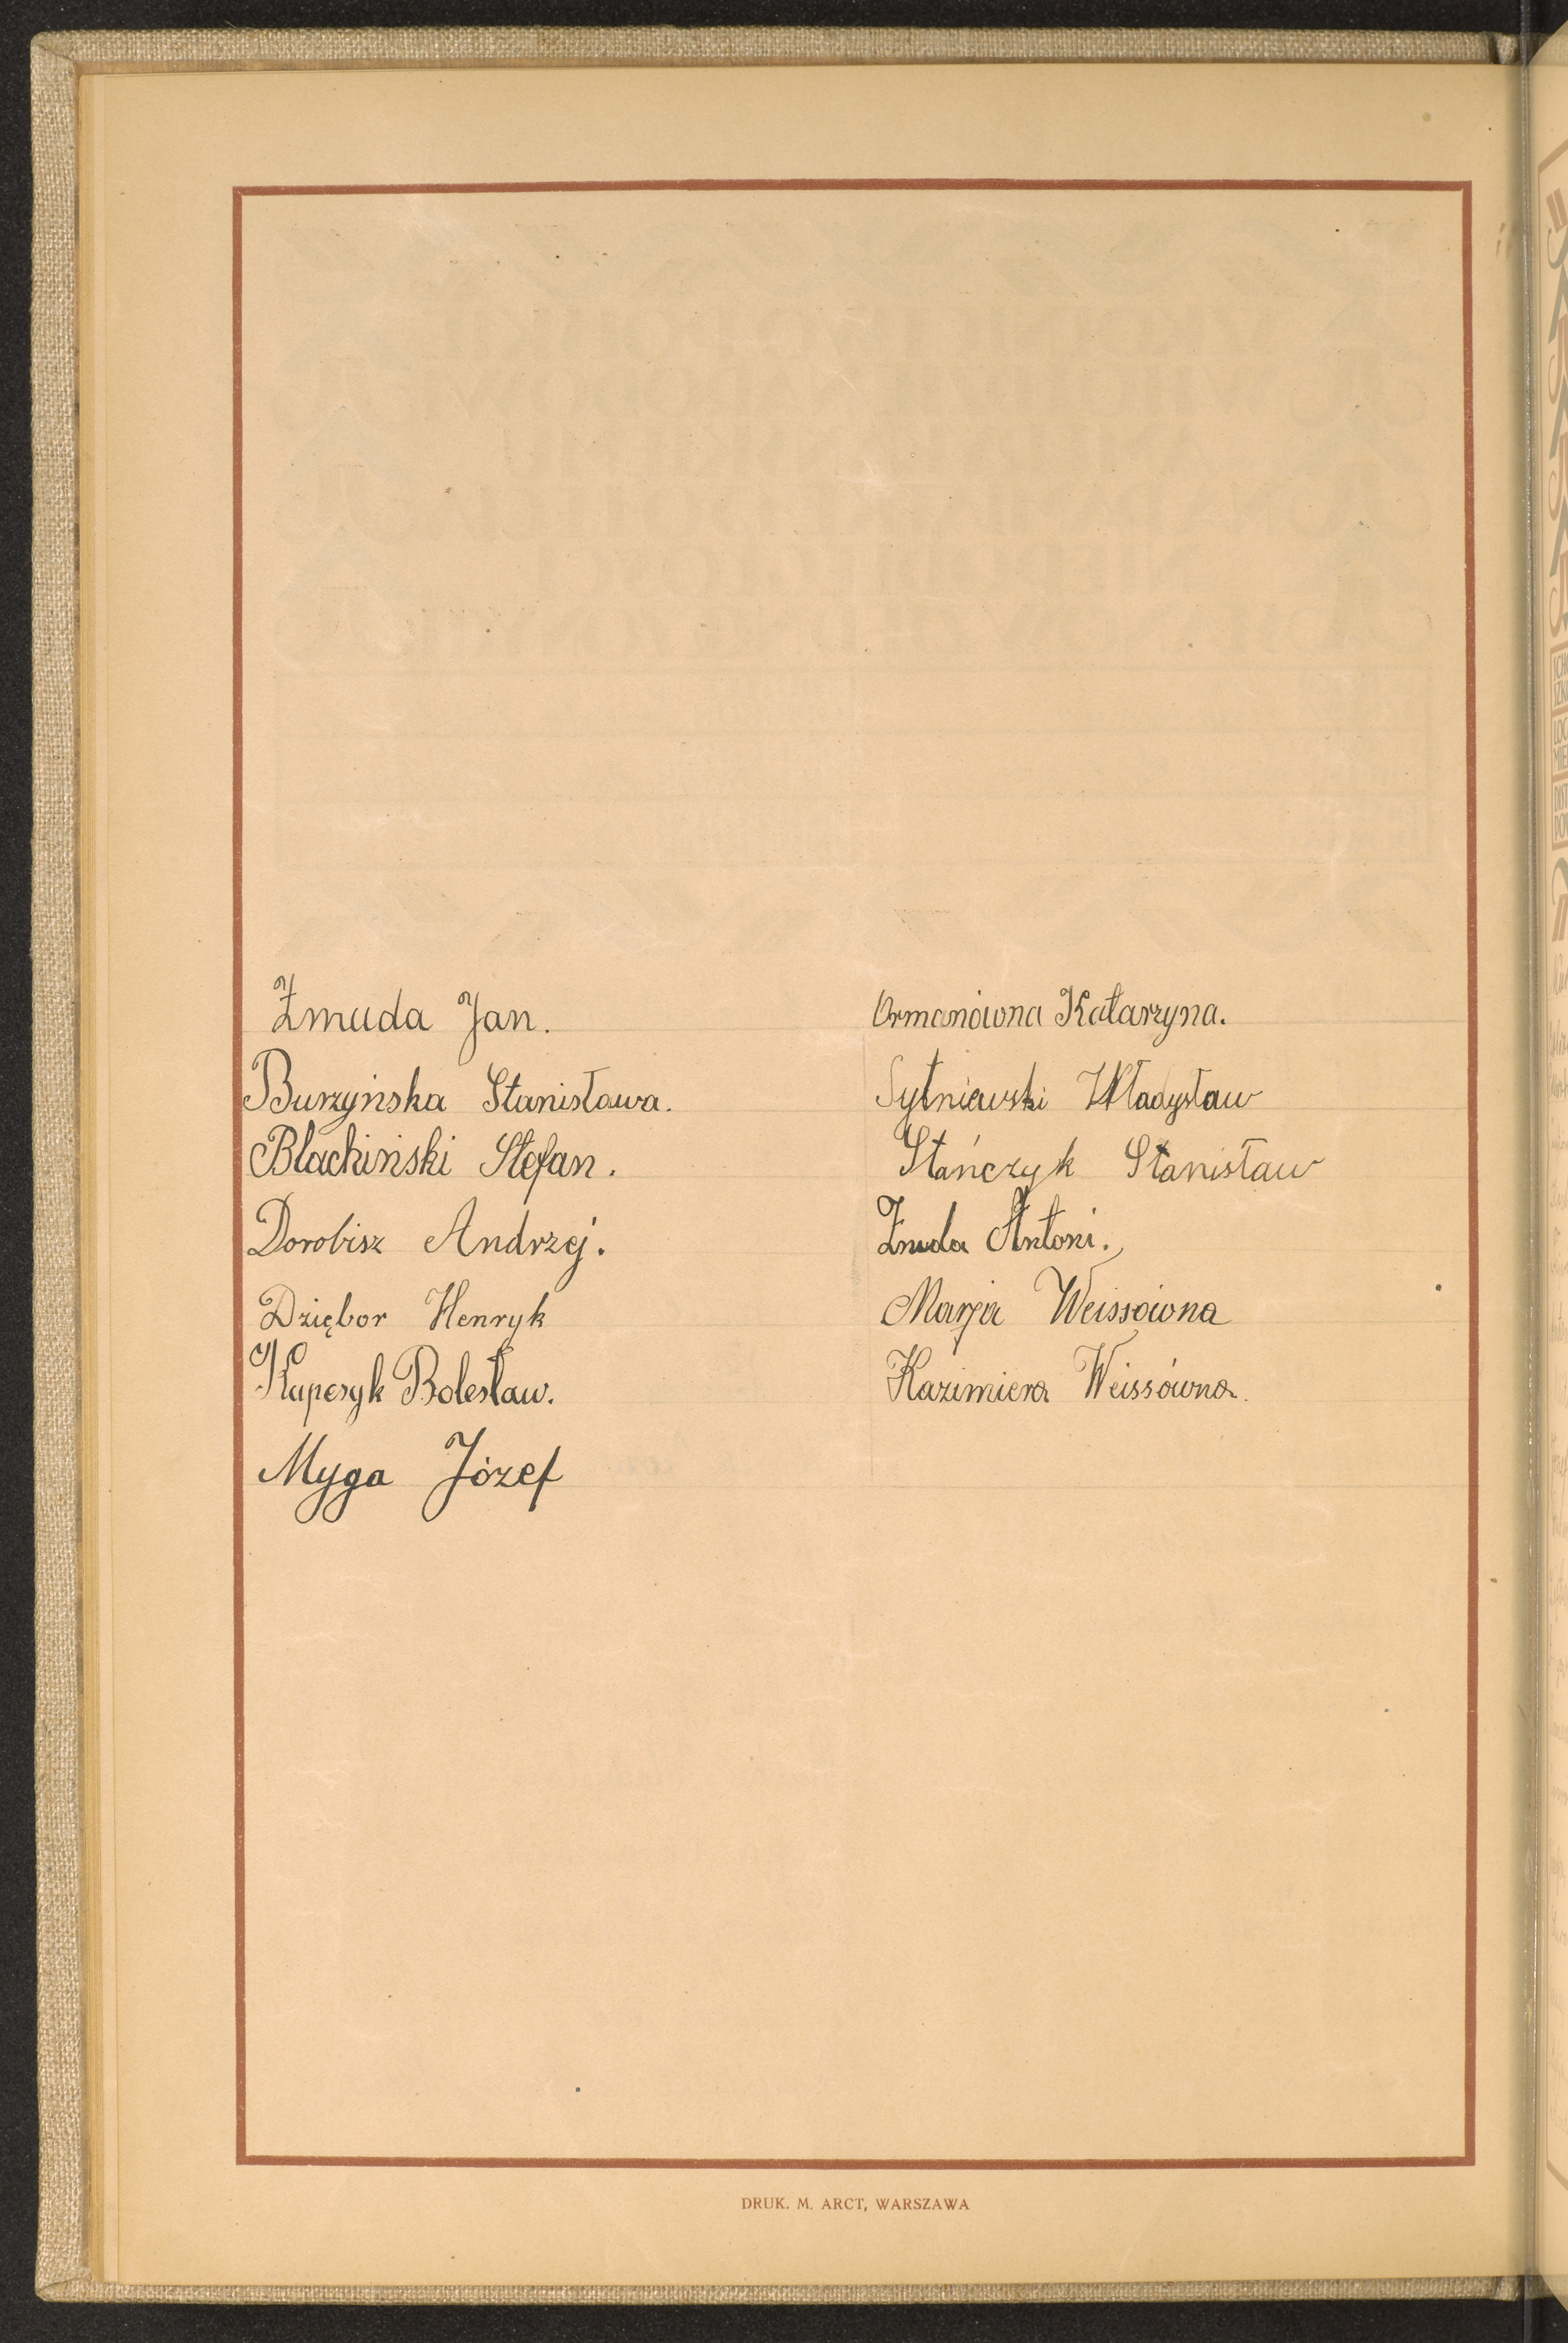 Żmuda Jan.
Burzyńska Stanisława.
Blachiński Stefan.
Dorobisz Andrzej.
Dziębor Henryk
Kapcsyk Bolesław.
Myga Józef
Ormanówna Katarzyna.
Sytniewski Władysław
Stańczyk Stanisław
Żmuda Antoni.
Marja Weissówna
Kazimiera Weissówna.
DRUK. M. ARCT, WARSZAWA